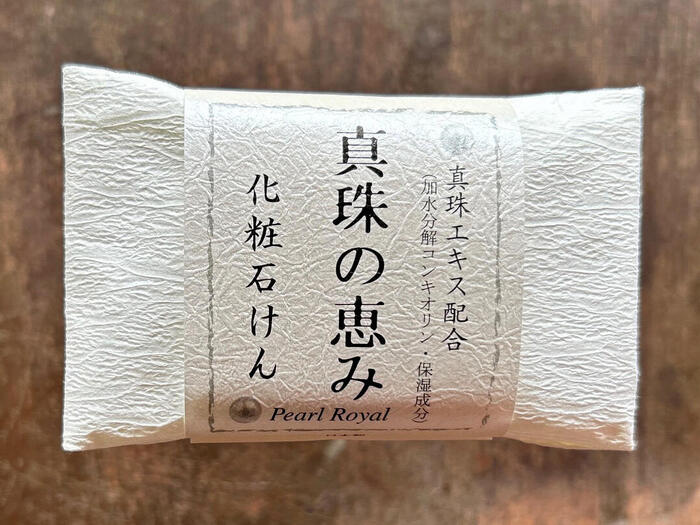 真珠エキス配合
(加水分解コンキオリン・保湿成分)
真珠の恵み
化粧石けん
Pearl Royal